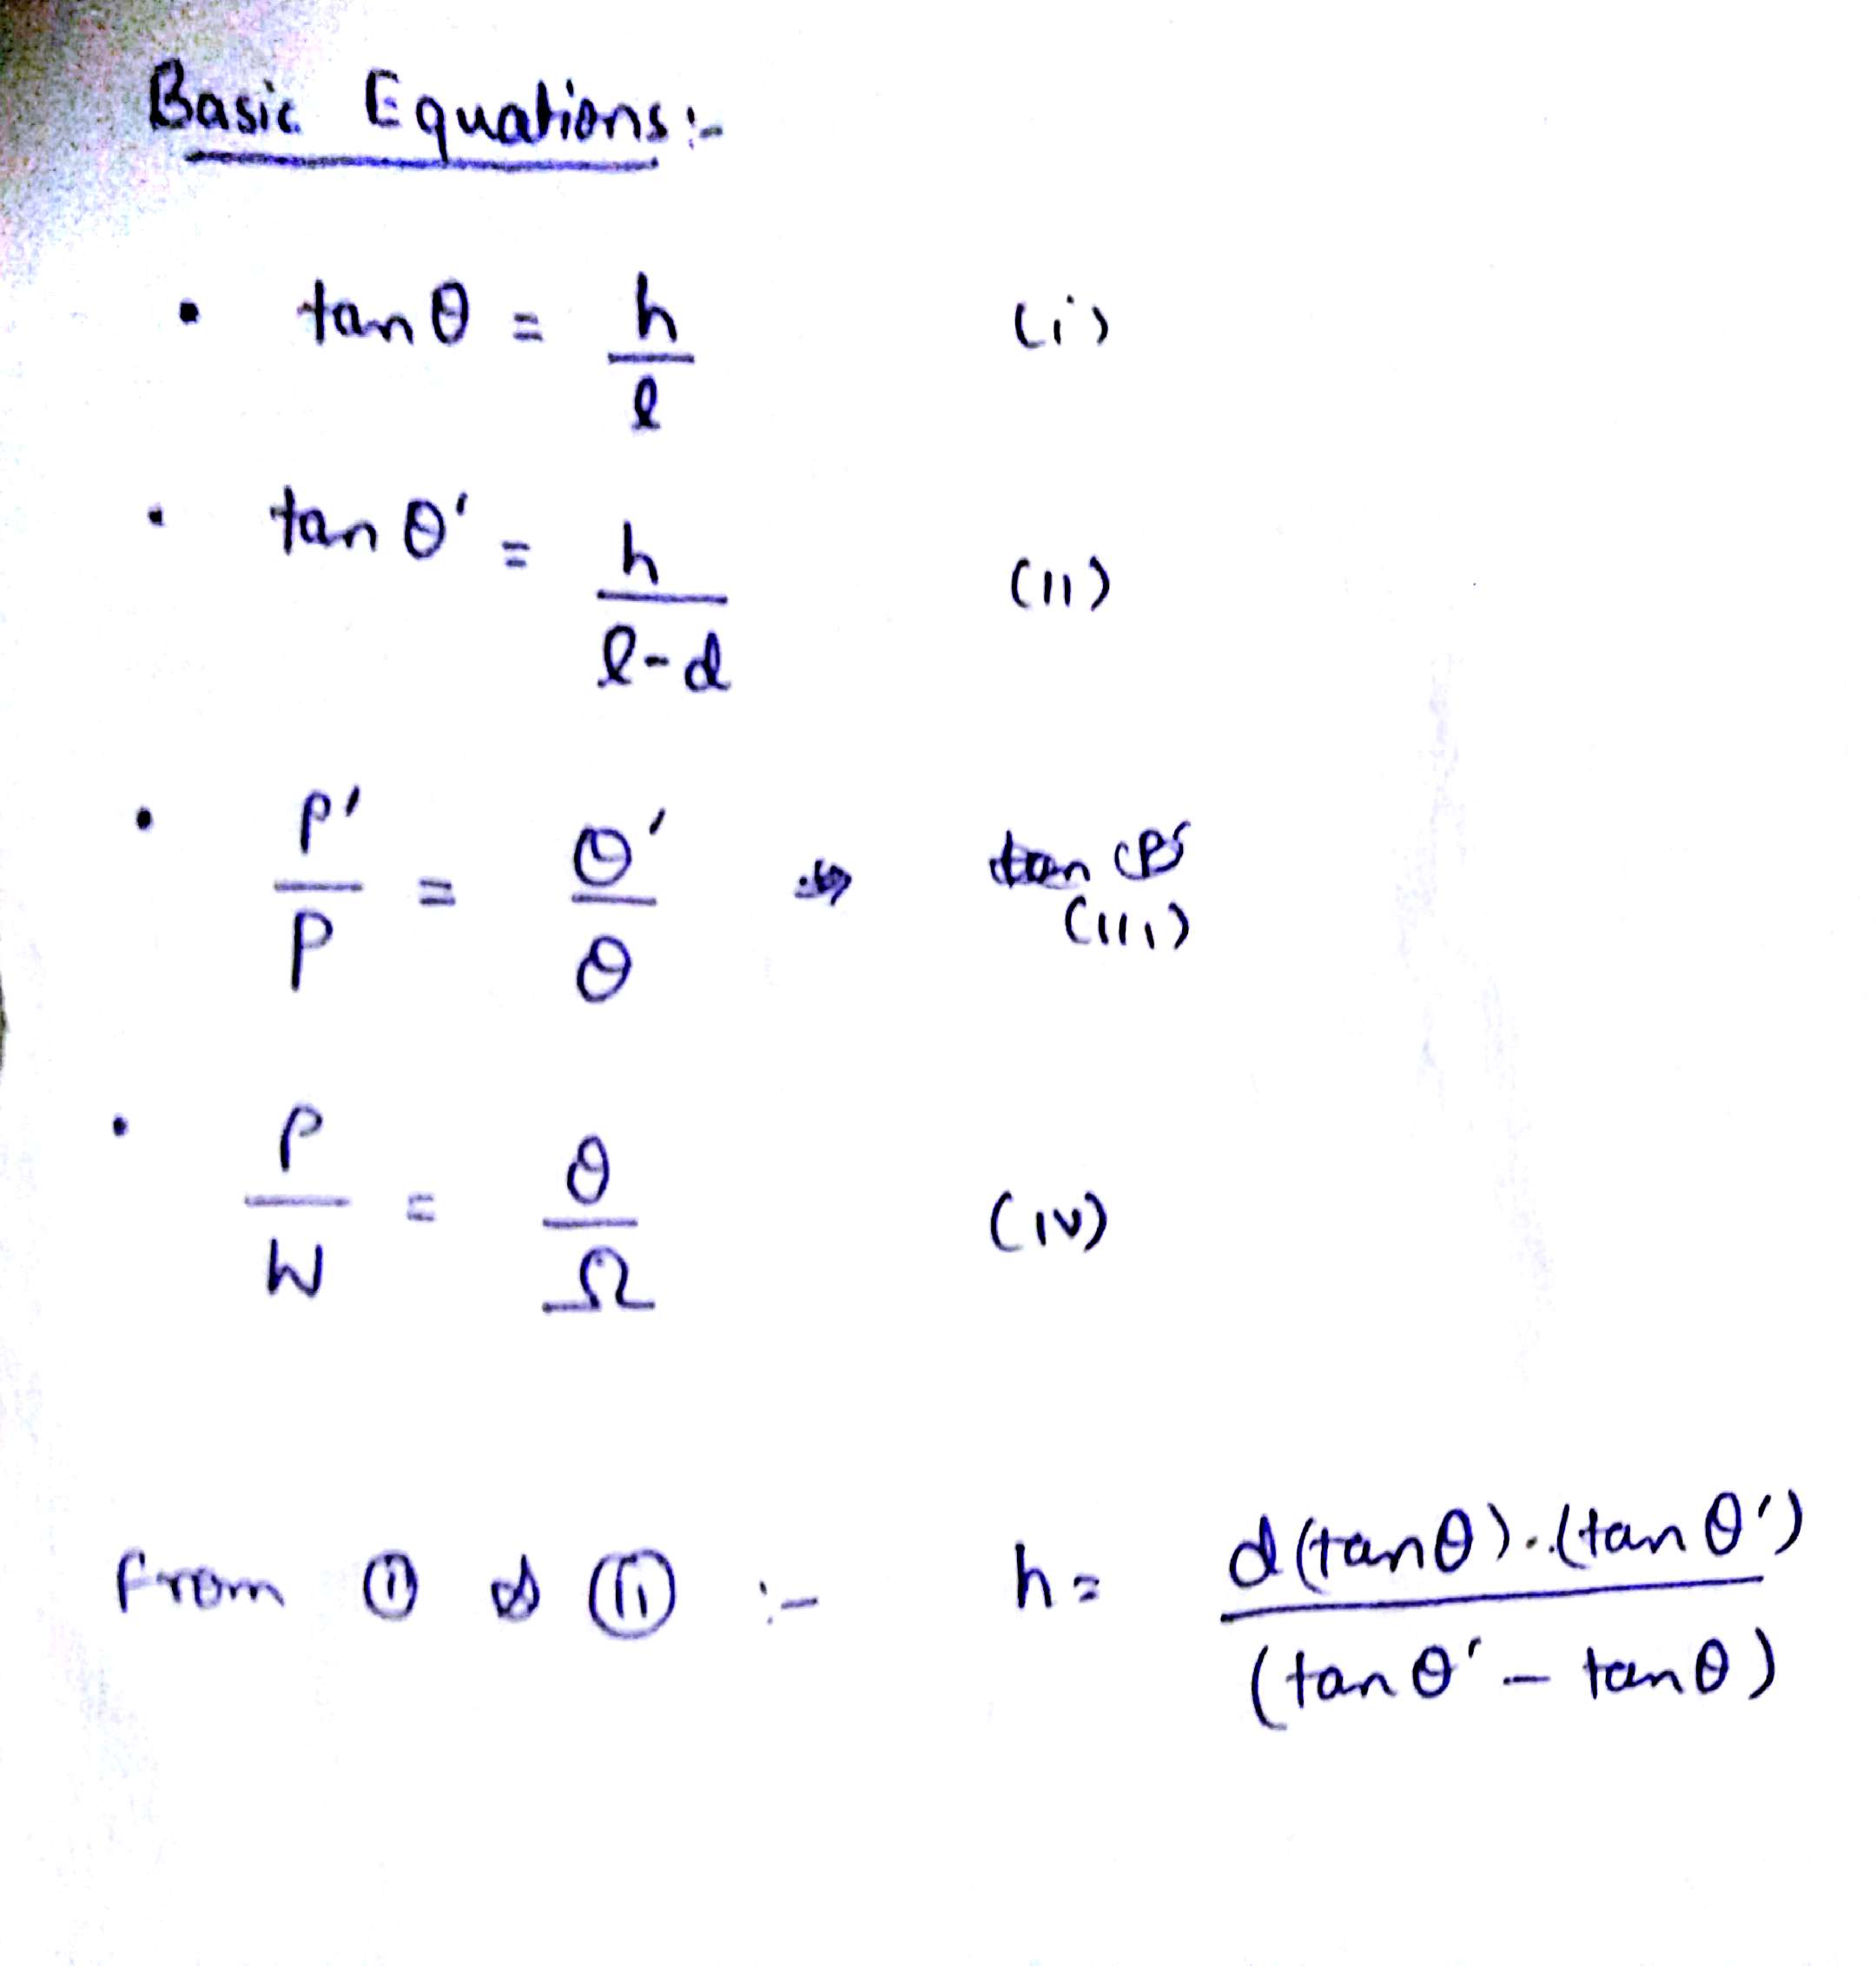 Basic Equations:-
• tan θ = h/l (i)
• tan θ' = h/(l-d) (ii)
• P'/P = θ'/θ (iii)
• P/W = θ/Ω (iv)
From (i) & (ii) :- h = d(tanθ).(tan θ')/(tan θ' - tan θ)